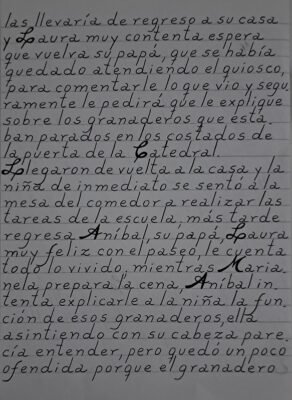 las llevaría de regreso a su casa
y Laura muy contenta espera
que vuelva su papá, que se había
quedado atendiendo el quiosco,
para comentarle lo que vio y segu
ramente le pedirá que le explique
sobre los granaderos que esta.
ban parados en los costados de
la puerta de la Catedral.
Llegaron de vuelta a la casa y la
niña de inmediato se sentó a la
mesa del comedor a realizar las
tareas de la escuela. más tarde
regresa Aníbal, su papá, Laura
muy feliz con el paseo, le cuenta
todo lo vivido, mientras Maria.
nela prepara la cena, Aníbal in.
tenta explicarle a la niña la fun.
ción de esos granaderos, ella
asintiendo con su cabeza pare.
cía entender, pero quedó un poco
ofendida porque el granadero